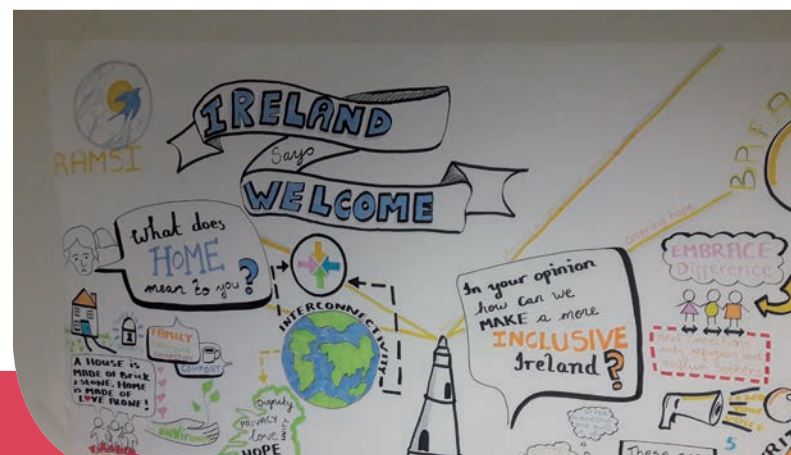 RAMSI
IRELAND
Says
WELCOME
What does
HOME
mean to you?
INTERCONNECTIVITY
FAMILY
COMFORT
A HOUSE IS
MADE OF BRICK
& STONE. HOME
IS MADE OF
LOVE ALONE!
Dignity
PRIVACY
love
UNITY
HOPE
In your opinion
how can we
MAKE a more
INCLUSIVE
Ireland?
EMBRACE
Difference
Make connections
with refugees and
asylum seekers
5
These are